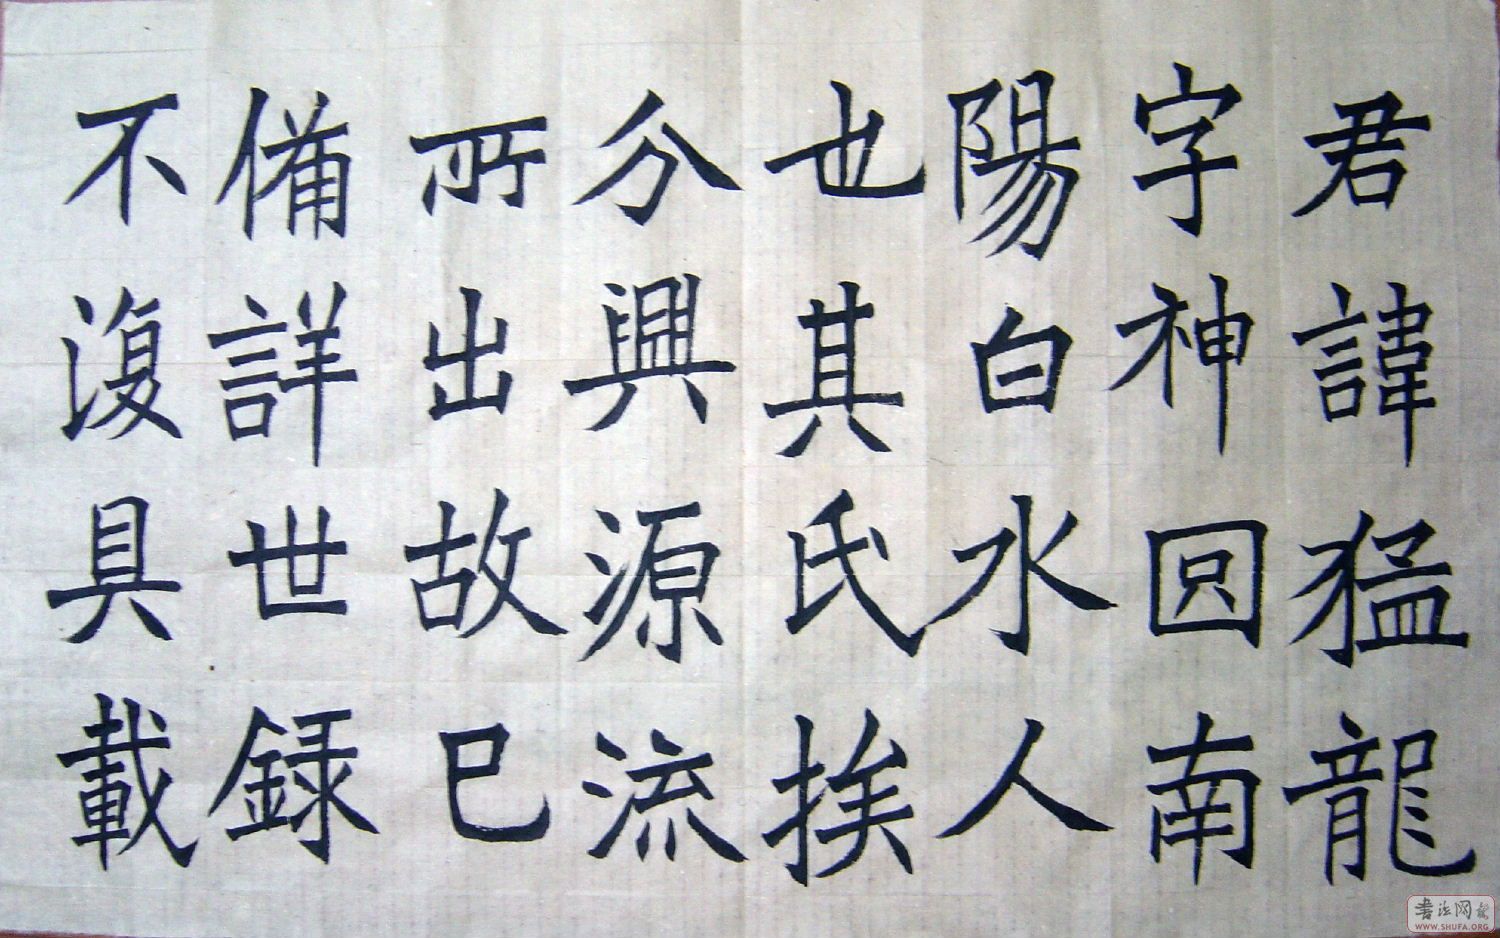 君諱猛龍
字神囧南
陽白水人
也其氏挨
分興源流
所出故已
備詳世録
不復具載
书法网
WWW.SHUFA.ORG